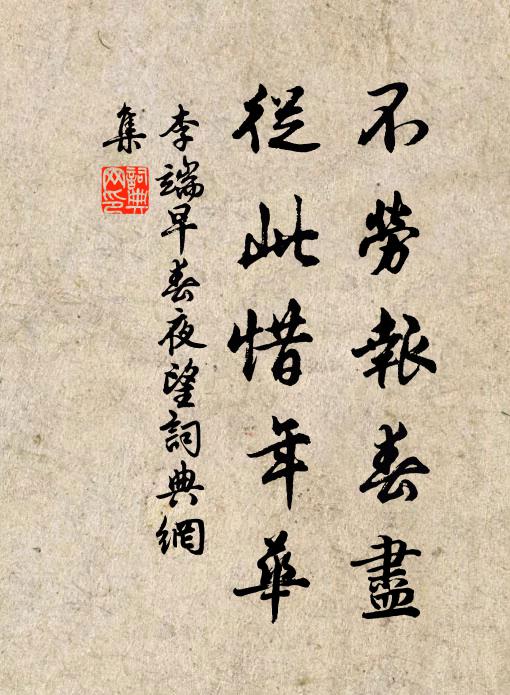 不勞報春盡
從此惜年華
李端早春夜望詞典網
集
詞典
网印